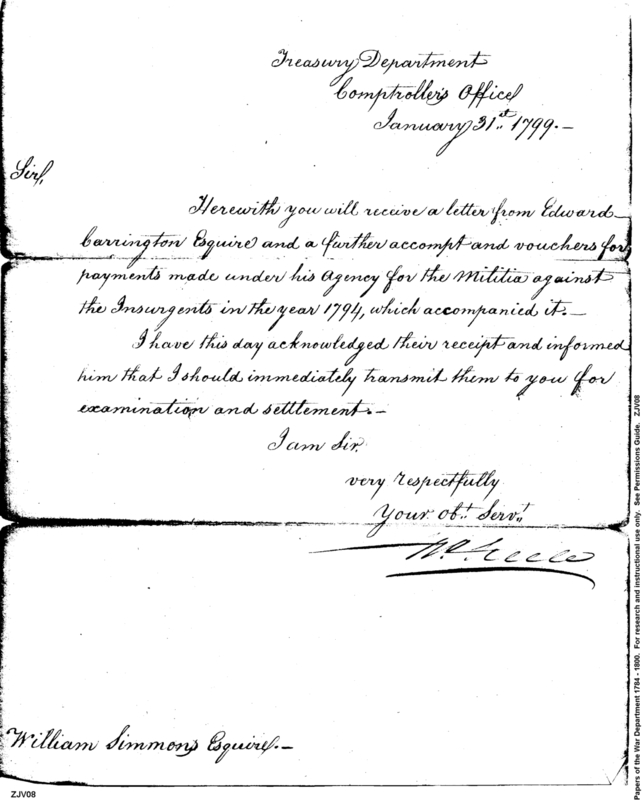 Treasury Department
Comptroller's Office
January 31.st 1799.—
Sir,
Herewith you will receive a letter from Edward
Carrington Esquire and a further accompt and vouchers for
payments made under his Agency for the Militia against
the Insurgents in the year 1794, which accompanied it.—
I have this day acknowledged their receipt and informed
him that I should immediately transmit them to you for
examination and settlement.—
I am Sir,
very respectfully
Your Ob.t Serv.t
William Simmons Esquire.—
ZJV08
Papers of the War Department 1784 - 1800. For research and instructional use only. See Permissions Guide. ZJV08